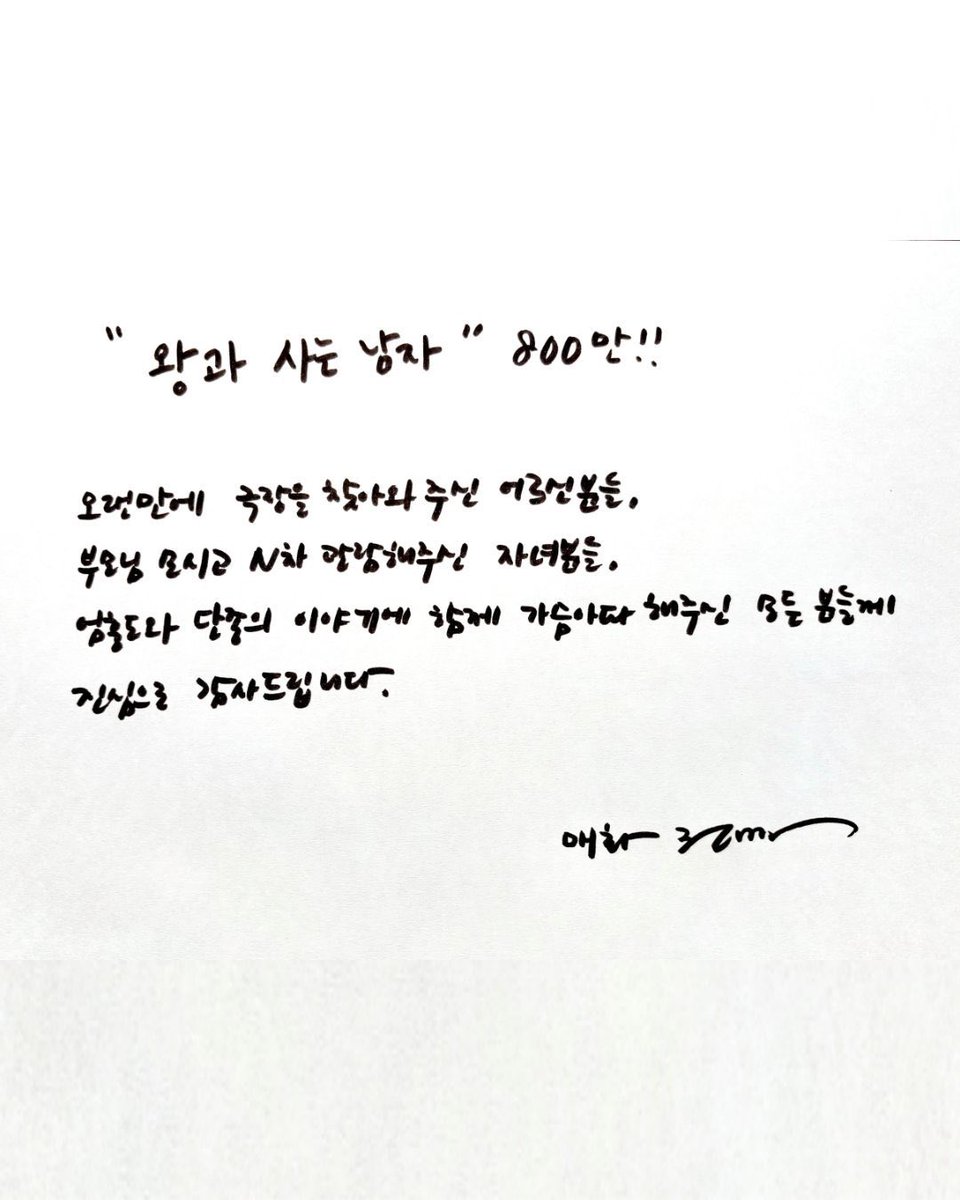 " 왕과 사는 남자 " 800만!!
오랜만에 극장을 찾아와 주신 어르신분들,
부모님 모시고 N차 관람해주신 자녀분들,
엄흥도와 단종의 이야기에 함께 가슴아파 해주신 모든 분들께
진심으로 감사드립니다.
매화